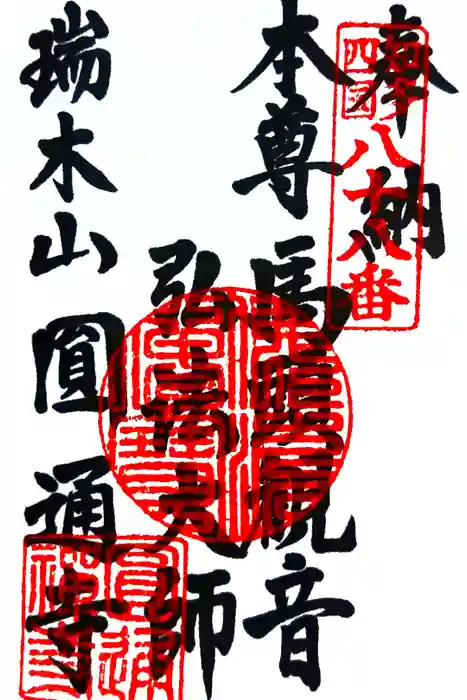 奉納
四国
八十八番
本尊 馬頭観音
弘法大師
瑞木山 圓通寺